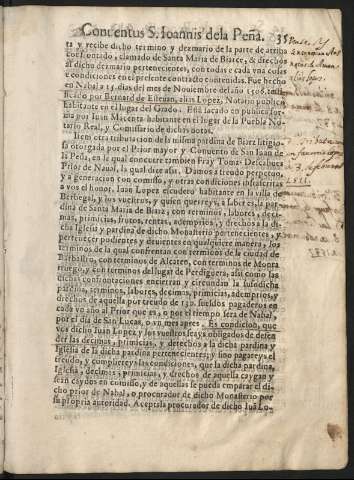 Conuentus S. Ioannis dela Peña. 35
ta y recibe dicho termino y dezmario de la parte de arriba
confrontado, clamado de Santa Maria de Biarce, & drechos
al dicho dezmario pertenecientes, con todas e cada vna cosas
e condiciones en el presente contracto contenidas. Fue hecho
en Nabal a 15. dias del mes de Nouiembre del año 1508. testi
ficado por Bernard de Esteuan, alias Lopez, Notario publico
habitante en el lugar del Grado. Està sacado en publica for
ma por Iuan Macenta habitante en el lugar de la Puebla No
tario Real, y Comissario de dichas notas.
Item otra tributacion de la misma pardina de Biarz litigio
sa otorgada por el Prior mayor y Conuento de San Iuan de
la Peña, en la qual concurre tambien Fray Tomas Descahues
Prior de Naual, la qual dize assi. Damos a treudo perpetuo,
y a generacion con comisso, y otras condiciones infrascritas
a vos el honor. Iuan Lopez escudero habitante en la villa de
Berbegal, y los vuestros, y quien querreys, a saber es, la par
dina de Santa Maria de Biarz, con terminos, labores, deci
mas, primicias, frutos, rentas, ademprios, y drechos a la di
cha Iglesia y pardina de dicho Monasterio portenecientes, y
pertenecer podientes y deuientes en qualquiere manera, los
terminos de la qual confrentan con terminos de la ciudad de
Barbastro, con terminos de Alcarez, con terminos de Monta
rruego, y con terminos del lugar de Perdiguera, assi como las
dichas confrontaciones encierran y circundan la susodicha
pardina, terminos, labores, decimas, primicias, ademprios, y
drechos de aquella por treudo de 132. sueldos pagaderos en
cada vn año al Prior que es, o por el tiempo sera de Nabal,
por el dia de San Lucas, o vn mes apres. Es condicion, que
vos dicho Iuan Lopez y los vuestros seays obligados de defen
der las decimas, primicias, y detechos a la dicha pardina y
Iglesia de la dicha pardina pertenecientes; y sino pagareys el
treudo, y complireys las condiciones, que la dicha pardina,
Iglesia, decimas, primicias, y drechos de aquella caygan y
sean caydos en comisso, y de aquellas se pueda emparar el di
cho prior de Nabal, o procurador de dicho Monasterio por
su propria autoridad. Aceptala procurador de dicho Iuā Lo-